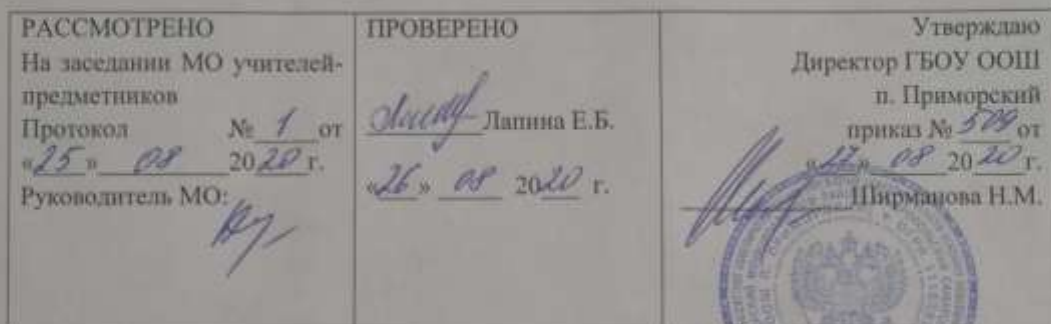 РАССМОТРЕНО
На заседании МО учителей-
предметников
Протокол № 1 от
«25» 08 2020 г.
Руководитель МО:
ПРОВЕРЕНО
Лапина Е.Б.
«26» 08 2020 г.
Утверждаю
Директор ГБОУ ООШ
п. Приморский
приказ № 509 от
«27» 08 2020 г.
Ширманова Н.М.